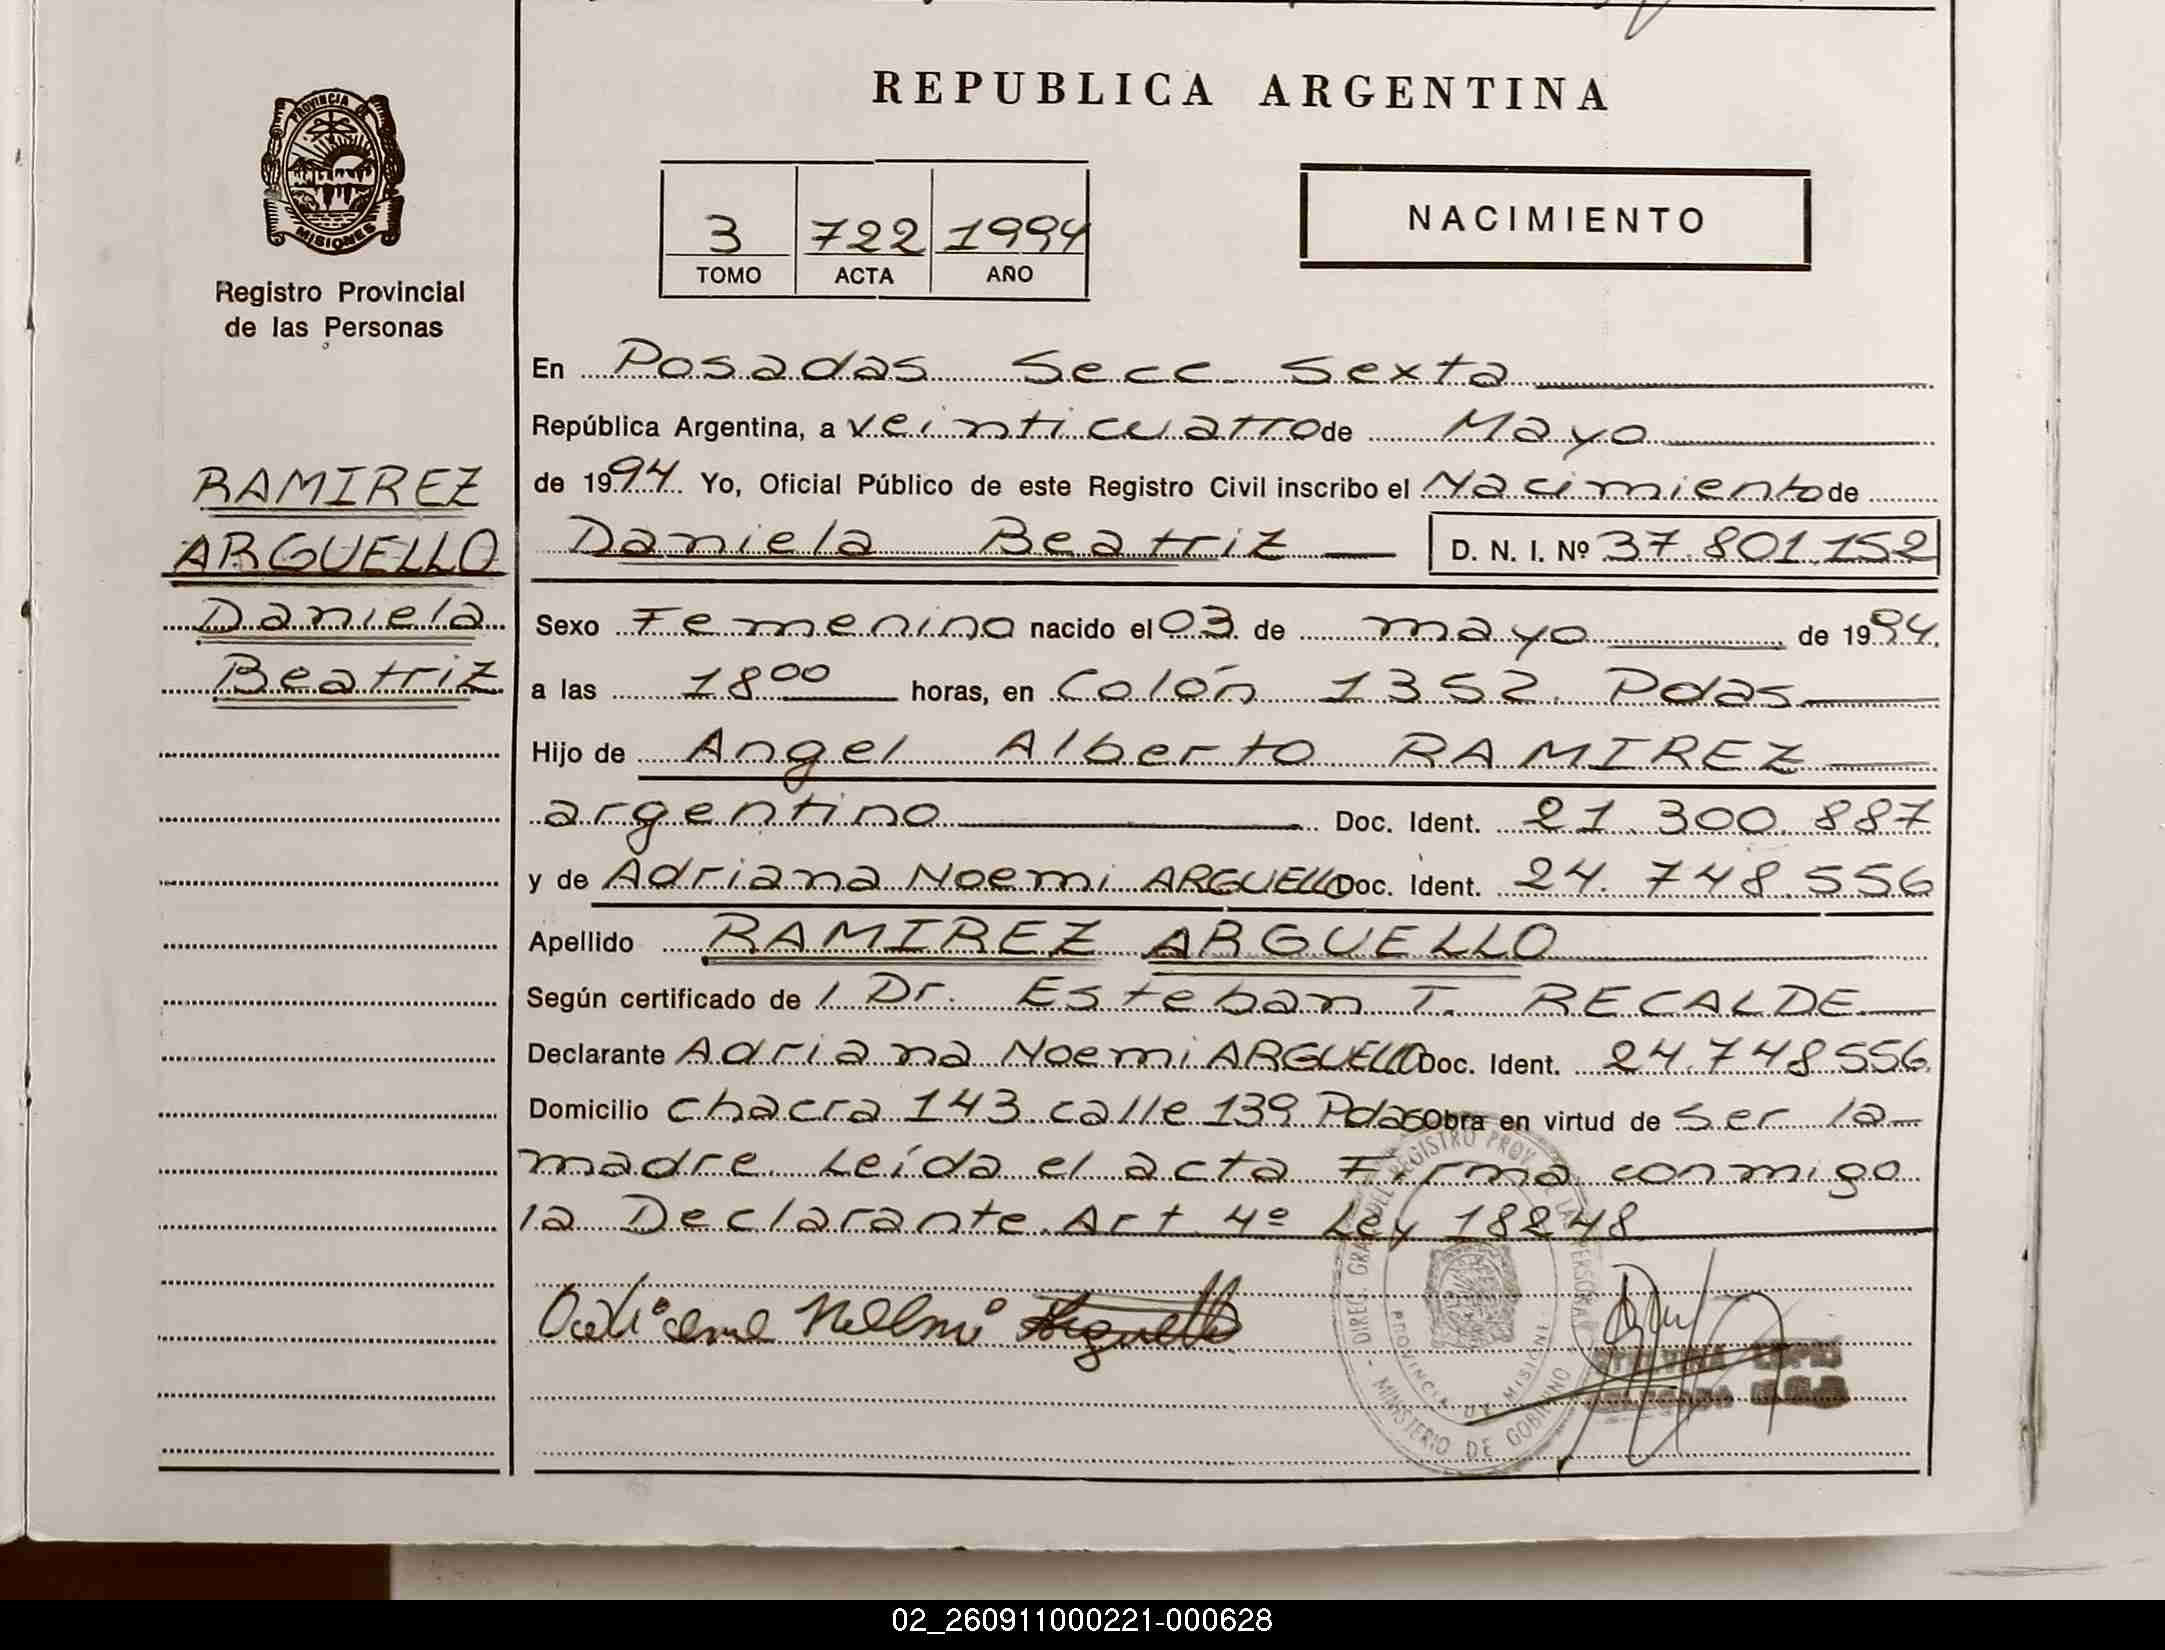 REPUBLICA ARGENTINA
PROVINCIA DE
MISIONES
Registro Provincial
de las Personas
3 722 1994
TOMO ACTA AÑO
NACIMIENTO
RAMIREZ
ARGUELLO
Daniela
Beatriz
En Posadas Secc Sexta
República Argentina, a veinticuatro de Mayo
de 1994 Yo, Oficial Público de este Registro Civil inscribo el Nacimiento de
Daniela Beatriz D. N. I. Nº 37.801.152
Sexo Femenino nacido el 03 de mayo de 1994.
a las 18 00 horas, en Colón 1352. Pdas
Hijo de Angel Alberto RAMIREZ
argentino Doc. Ident. 21.300.887
y de Adriana Noemi ARGUELLO Doc. Ident. 24.748.556
Apellido RAMIREZ ARGUELLO
Según certificado de / Dr. Esteban T. RECALDE
Declarante Adriana Noemi ARGUELLO Doc. Ident. 24.748556
Domicilio chacra 143 calle 139 Pdas Obra en virtud de ser la
madre. Leída el acta Firma conmigo
la Declarante. Art 4º Ley 18248
DIREC. GRAL. DEL REGISTRO PROV. DE LAS PERSONAS
PROVINCIA DE MISIONES
- MINISTERIO DE GOBIERNO
Arguello
02_260911000221-000628